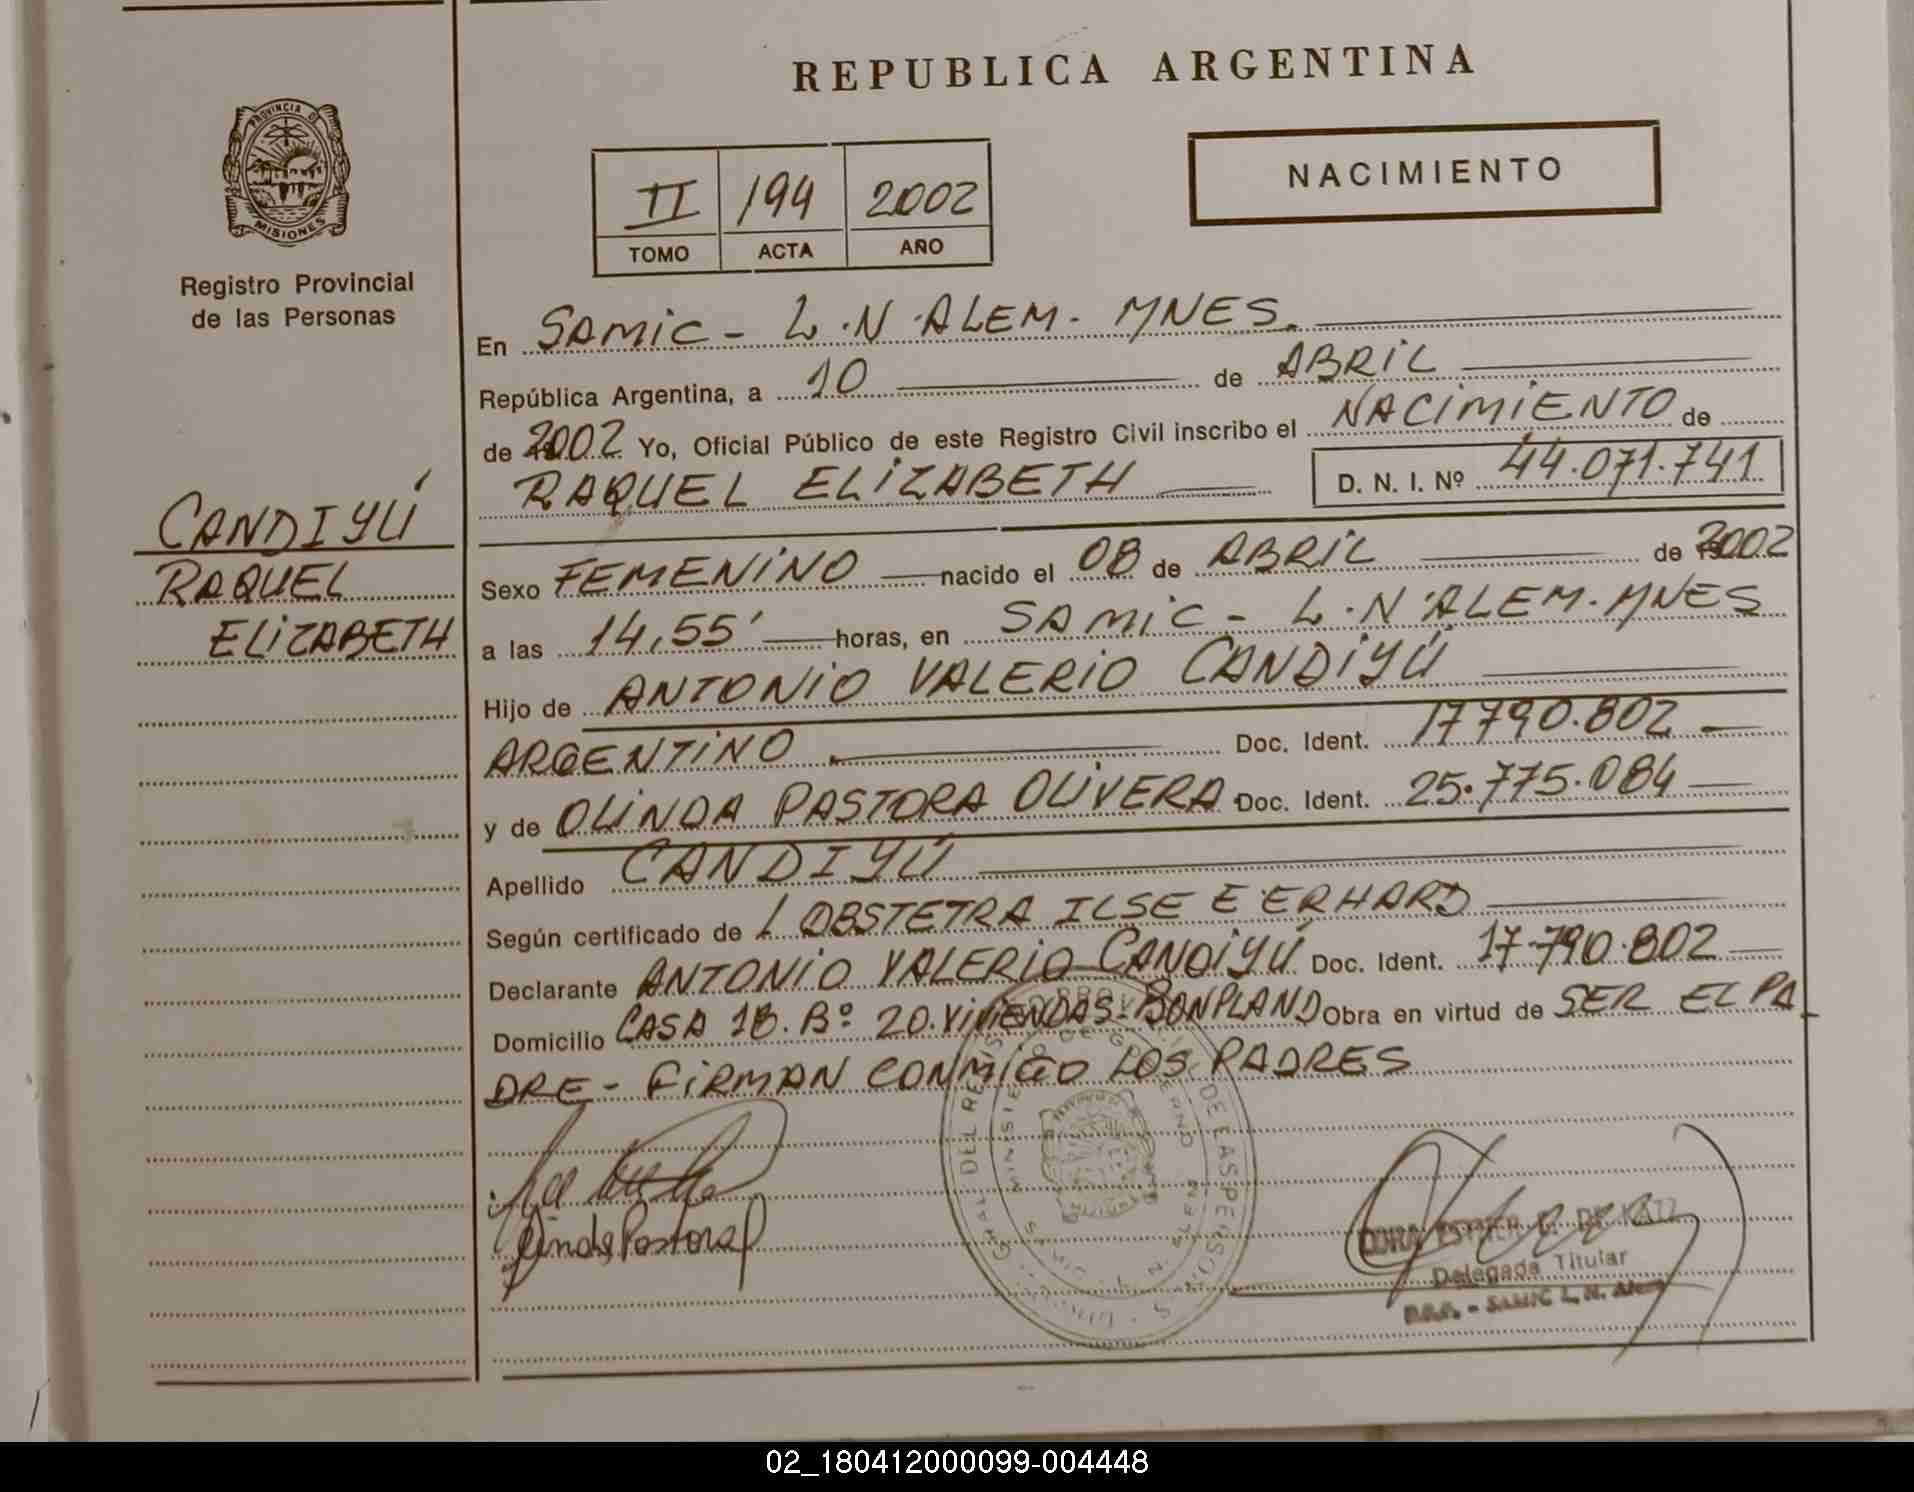 REPUBLICA ARGENTINA
PROVINCIA DE
MISIONES
Registro Provincial
de las Personas
II 194 2002
TOMO ACTA AÑO
NACIMIENTO
CANDIYÚ
RAQUEL
ELIZABETH
En SAMIC - L.N. ALEM - MNES.
República Argentina, a 10 de ABRIL
de 2002 Yo, Oficial Público de este Registro Civil inscribo el NACIMIENTO de
RAQUEL ELIZABETH D. N. I. Nº 44.071.741
Sexo FEMENINO nacido el 08 de ABRIL de 2002
a las 14,55' horas, en SAMIC - L.N. ALEM - MNES
Hijo de ANTONIO VALERIO CANDIYÚ
ARGENTINO. Doc. Ident. 17790.802
y de OLINDA PASTORA OLIVERA Doc. Ident. 25.775.084
Apellido CANDIYÚ
Según certificado de / OBSTETRA ILSE E ERHARD
Declarante ANTONIO VALERIO CANDIYÚ Doc. Ident. 17.790.802
Domicilio CASA 18. Bº 20. VIVIENDAS - BONPLAND Obra en virtud de SER EL PA
DRE - FIRMAN CONMIGO LOS PADRES
Delegada Titular
SAMIC L. N. Alem
02_180412000099-004448